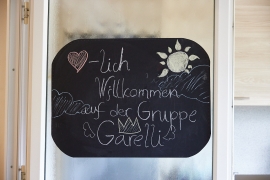 -lich
Willkommen
auf der Gruppe
Garelli